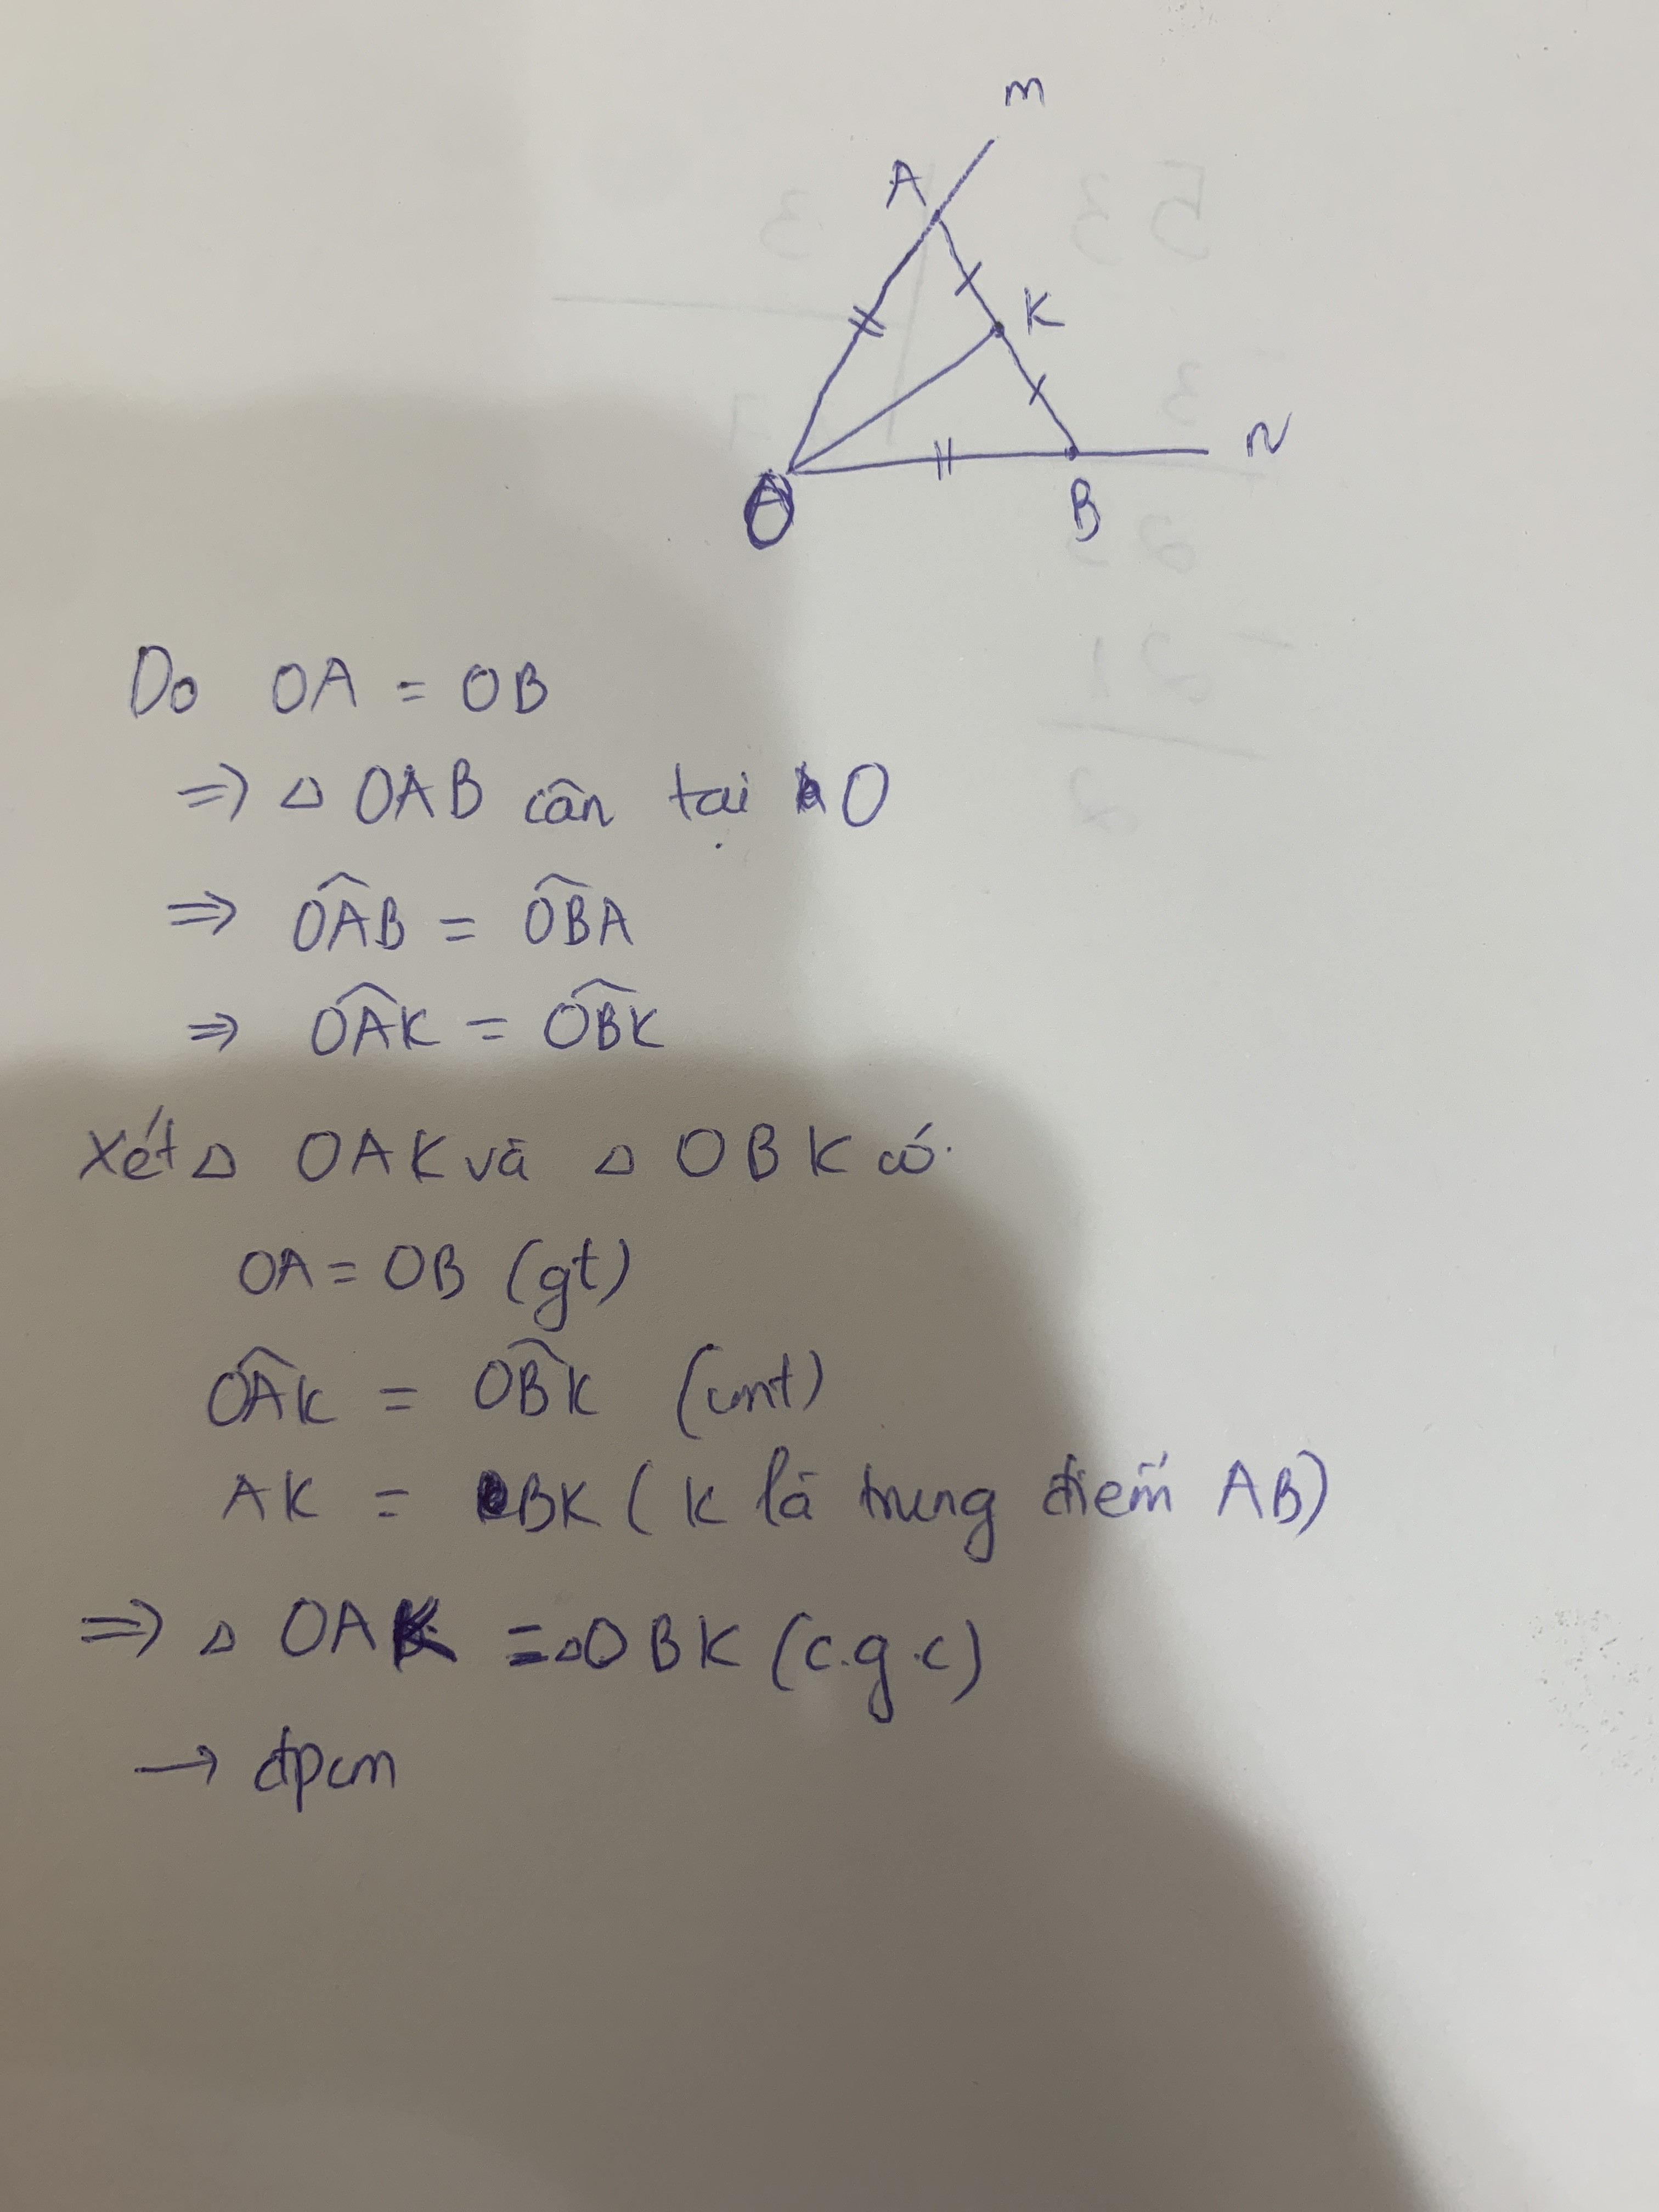 M
A
K
N
O
B
Do OA = OB
=> △ OAB cân tại O
=> OÂB = OB̂A
=> OÂK = OB̂K
Xét △ OAK và △ OBK có.
OA = OB (gt)
OÂK = OB̂K (cmt)
AK = BK ( K là trung điểm AB)
=> △ OAK = △OBK (c.g.c)
→ đpcm